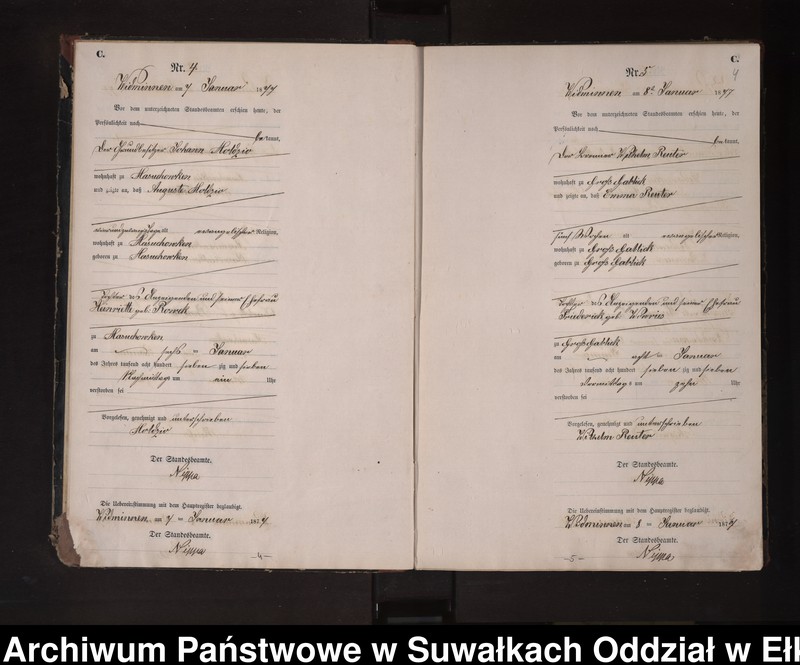 C.
Nr. 4
Widminnen am 7 Januar 1877
Vor dem unterzeichneten Standesbeamten erschien heute, der
Persönlichkeit nach
bekannt,
Der Grundbesitzer Johann Moldzio
wohnhaft zu Masuchowken
und zeigte an, daß Auguste Moldzio
alt evangelischer Religion,
wohnhaft zu Masuchowken
geboren zu Masuchowken
Tochter des Anzeigenden und seiner Ehefrau
Henriette geb.
zu Masuchowken
am sechs ten Januar
des Jahres tausend acht hundert sieben zig und sieben
Nachmittags um ein Uhr
verstorben sei
Vorgelesen, genehmigt und unterschrieben
Moldzio
Der Standesbeamte.
Nippa
Die Uebereinstimmung mit dem Hauptregister beglaubigt.
Widminnen am 7 ten Januar 1877
Der Standesbeamte.
Nippa
- 4 -
C.
4
Nr. 5
Widminnen am 8t Januar 1877
Vor dem unterzeichneten Standesbeamten erschien heute, der
Persönlichkeit nach
bekannt,
Der Wilhelm Reuter
wohnhaft zu Groß Gablick
und zeigte an, daß Emma Reuter
fünf Wochen alt evangelischer Religion,
wohnhaft zu Groß Gablick
geboren zu Groß Gablick
Tochter des Anzeigenden und seiner Ehefrau
Friederick geb
zu Groß Gablick
am acht ten Januar
des Jahres tausend acht hundert sieben zig und sieben
Vormittags um zehn Uhr
verstorben sei
Vorgelesen, genehmigt und unterschrieben
Wilhelm Reuter
Der Standesbeamte.
Nippa
Die Uebereinstimmung mit dem Hauptregister beglaubigt.
Widminnen am 8 ten Januar 1877
Der Standesbeamte.
Nippa
- 5 -
Archiwum Państwowe w Suwałkach Oddział w Ełk